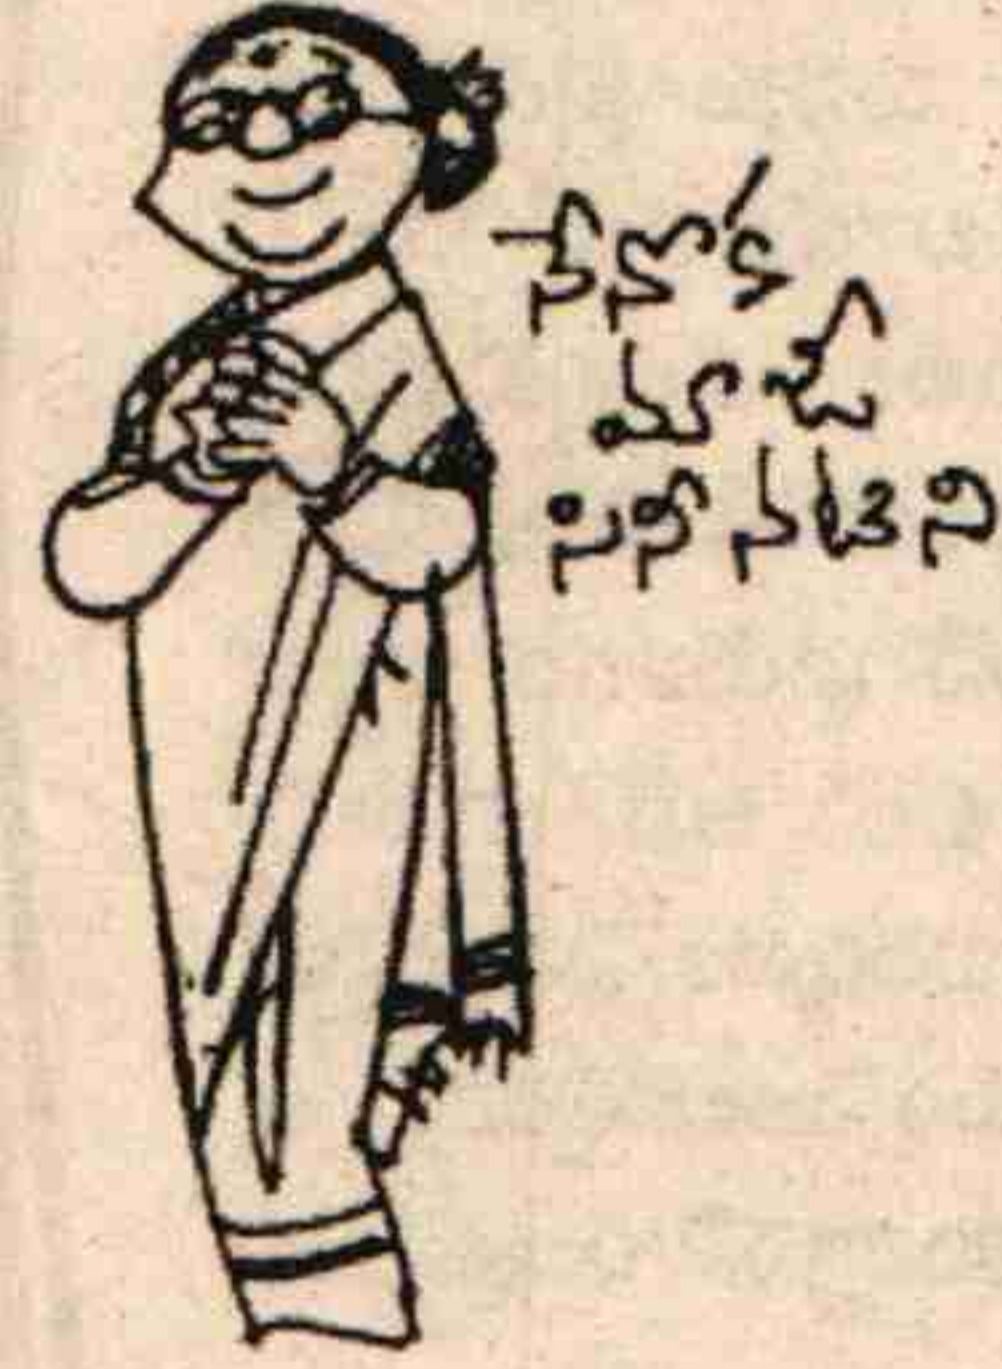 నేనొక
మాజీ
సినీ నటిని